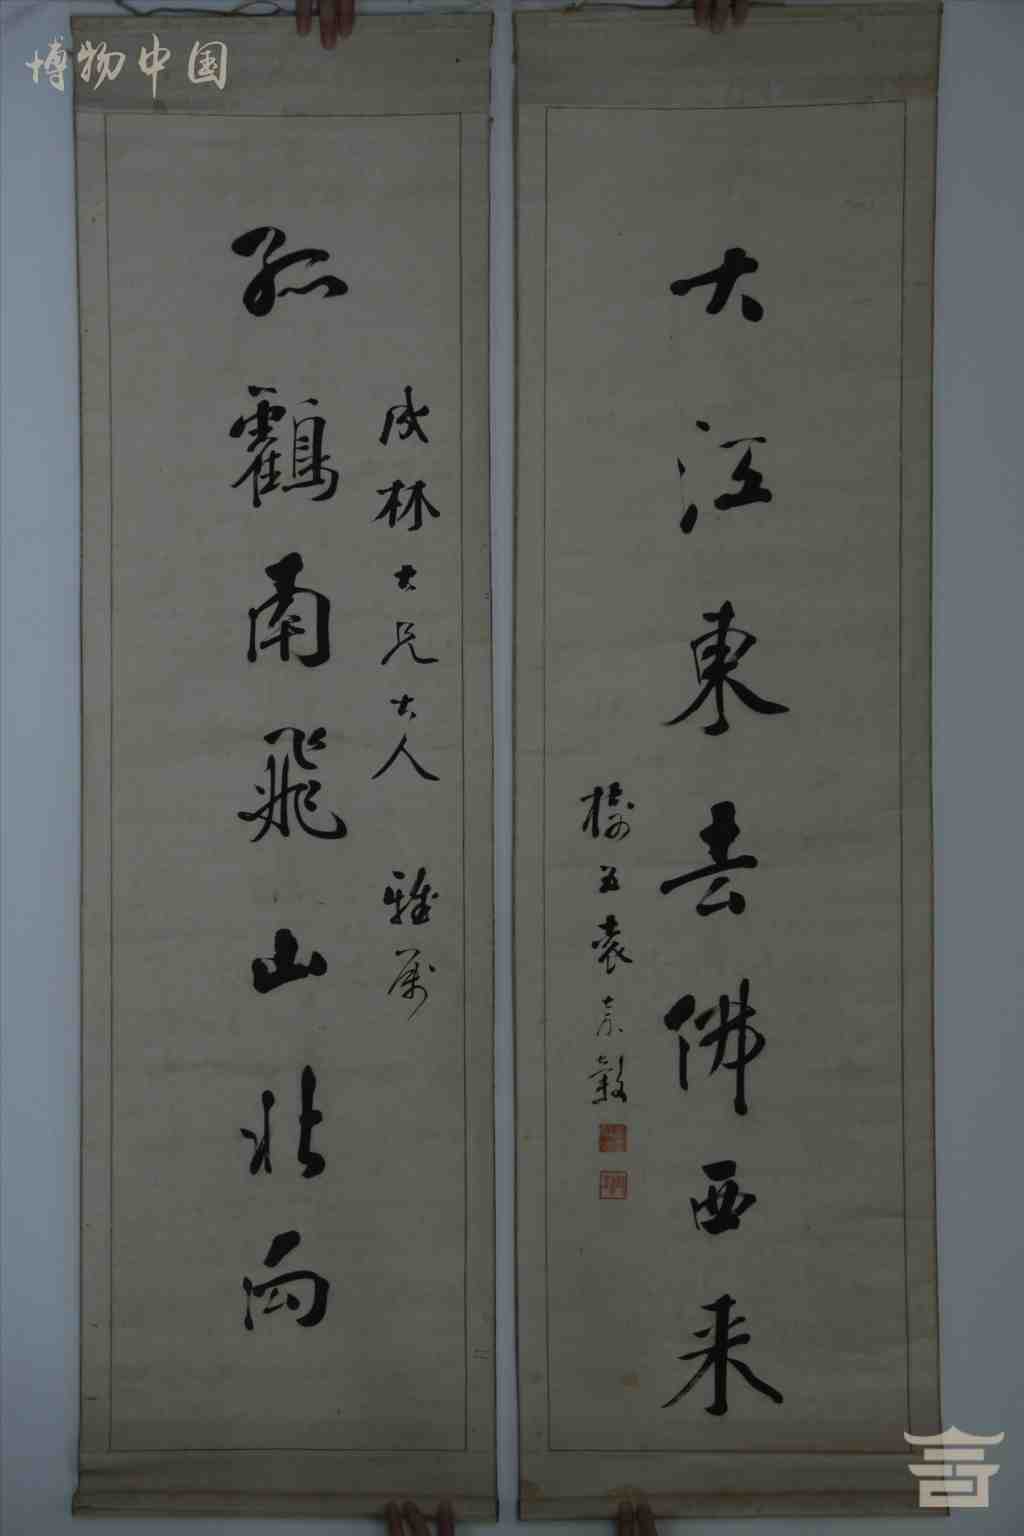 博物中国
大江東去佛西来
樹五袁嘉穀
成林大兄大人 雅属
孤鶴南飛山北向